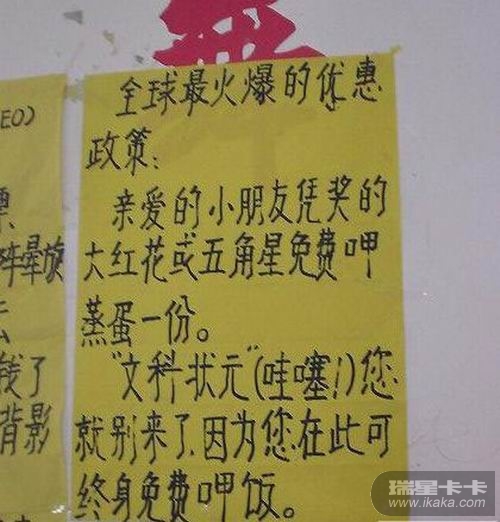 EO)
晕旋
钱了
背影
全球最火爆的优惠
政策:
亲爱的小朋友凭奖的
大红花或五角星免费呷
蒸蛋一份。
"文科状元"(哇噻!)您
就别来了,因为您在此可
终身免费呷饭。
瑞星卡卡
www.ikaka.com